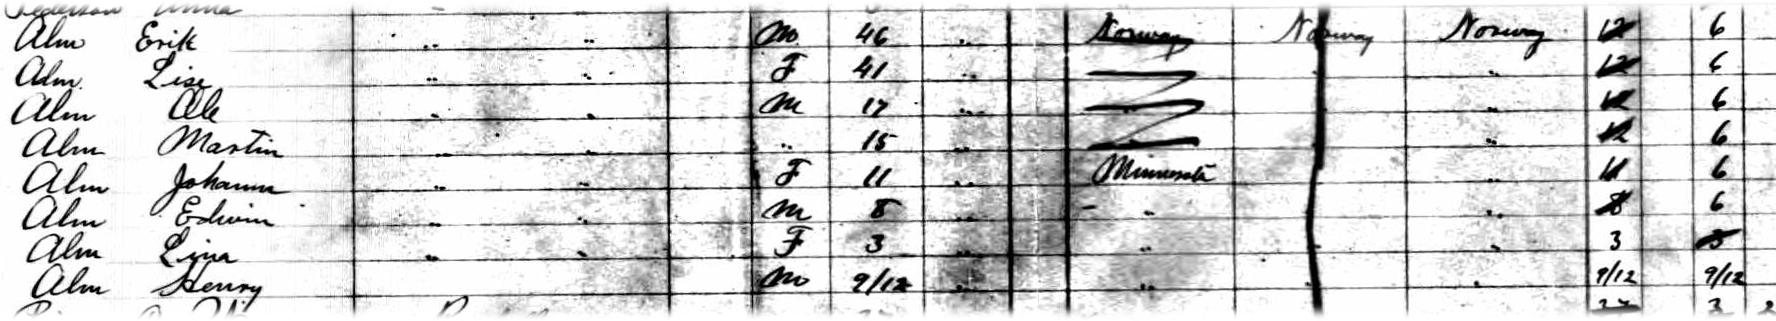 Alm Erik .. .. M 46 .. Norway Norway Norway 12 6
Alm Lise .. .. F 41 .. .. 12 6
Alm Ole .. .. M 17 .. .. .. 12 6
Alm Martin .. .. .. 15 .. .. 12 6
Alm Johanna .. .. F 11 .. Minnesota .. 11 6
Alm Edwin .. .. M 8 .. .. .. 8 6
Alm Lina .. .. F 3 .. .. .. 3 3
Alm Henry M 9/12 .. .. .. 9/12 9/12